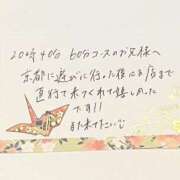 20時40分 60分コースのお兄様へ
京都に遊びに行った後にお店まで
直行で来てくれて嬉しました
です!!
また来てたいい